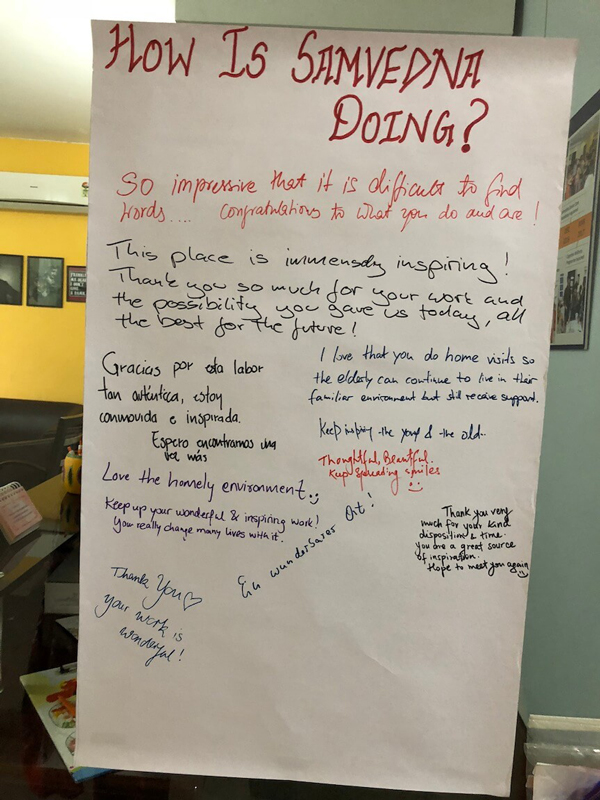 HOW IS SAMVEDNA
DOING?
So impressive that it is difficult to find
words.... Congratulations to what you do and are!
This place is immensely inspiring!
Thank you so much for your work and
the possibility you gave us today, all
the best for the future!
Gracias por esta labor
tan auténtica, estoy
conmovida e inspirada.
Espero encontrarnos una
vez más
I love that you do home visits so
the elderly can continue to live in their
familiar environment but still receive support.
Keep inspiring the young & the old..
Thoughtful, Beautiful.
Keep spreading smiles
Love the homely environment
Keep up your wonderful & inspiring work!
You really change many lives with it.
Ein wunderbarer Ort!
Thank you very
much for your kind
disposition & time.
you are a great source
of inspiration.
Hope to meet you again
Thank You
your work is
wonderful!